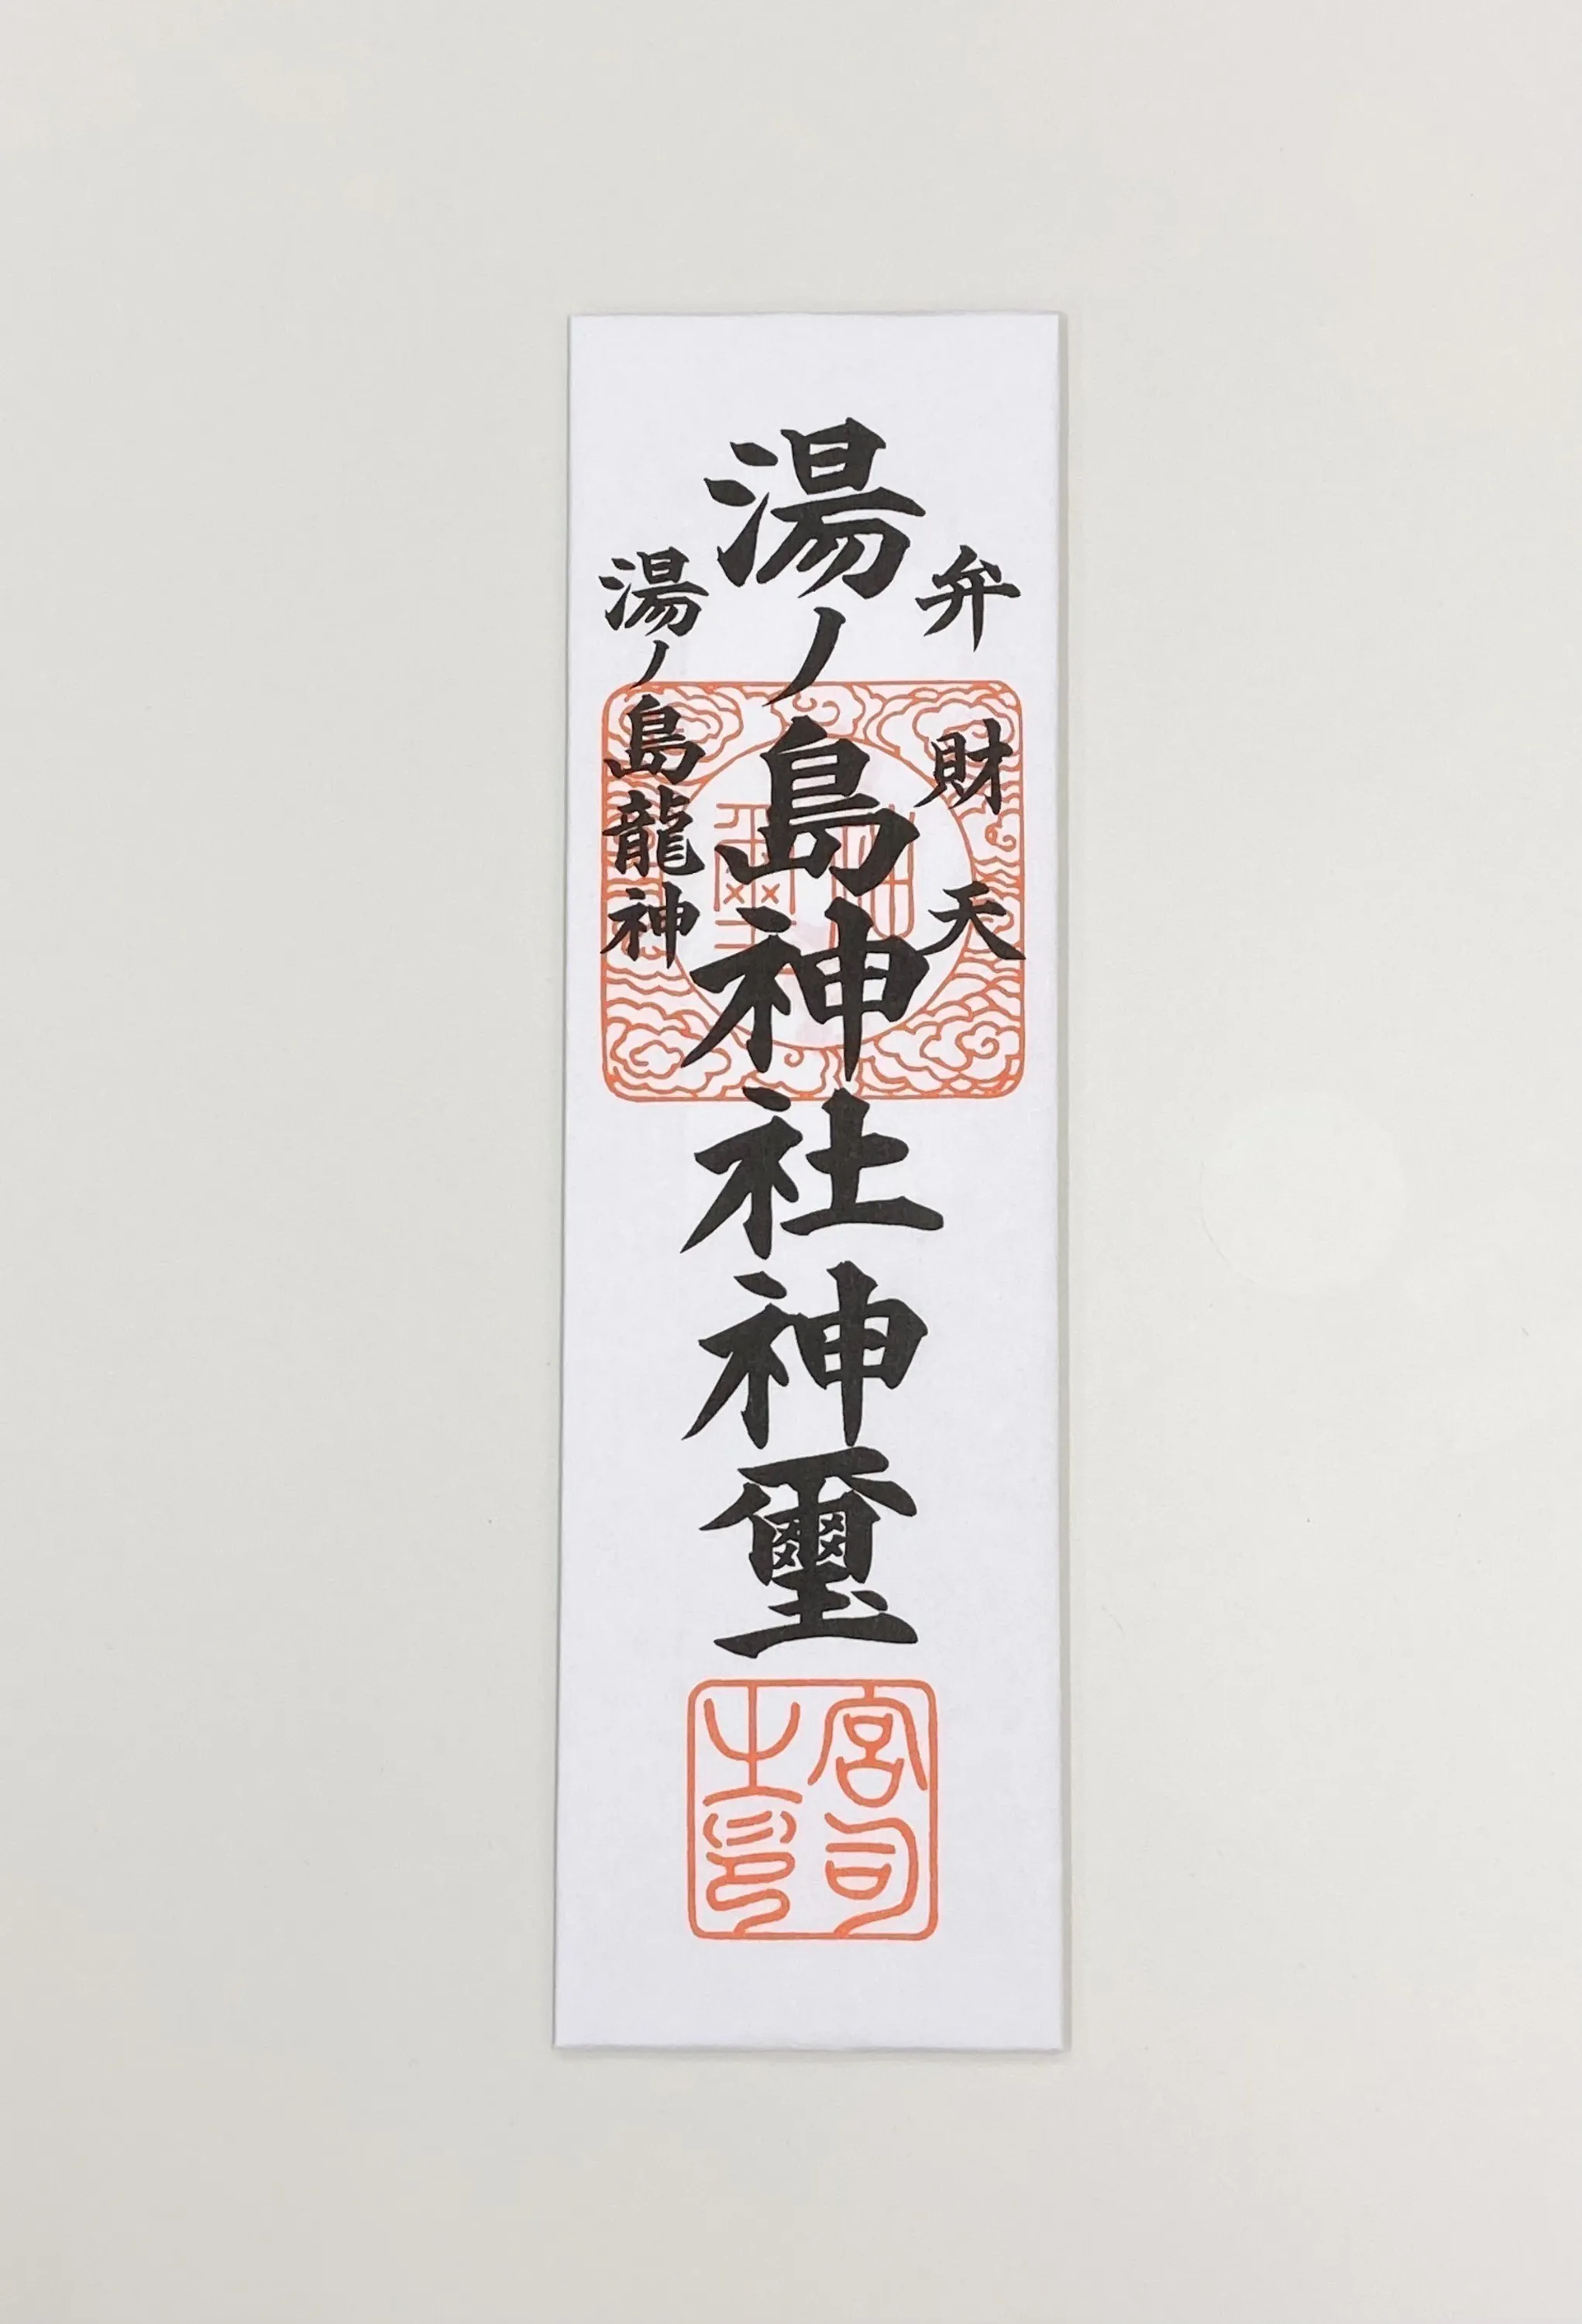 弁財天
湯ノ島神社神璽
湯ノ島龍神
神璽
宮司
之印